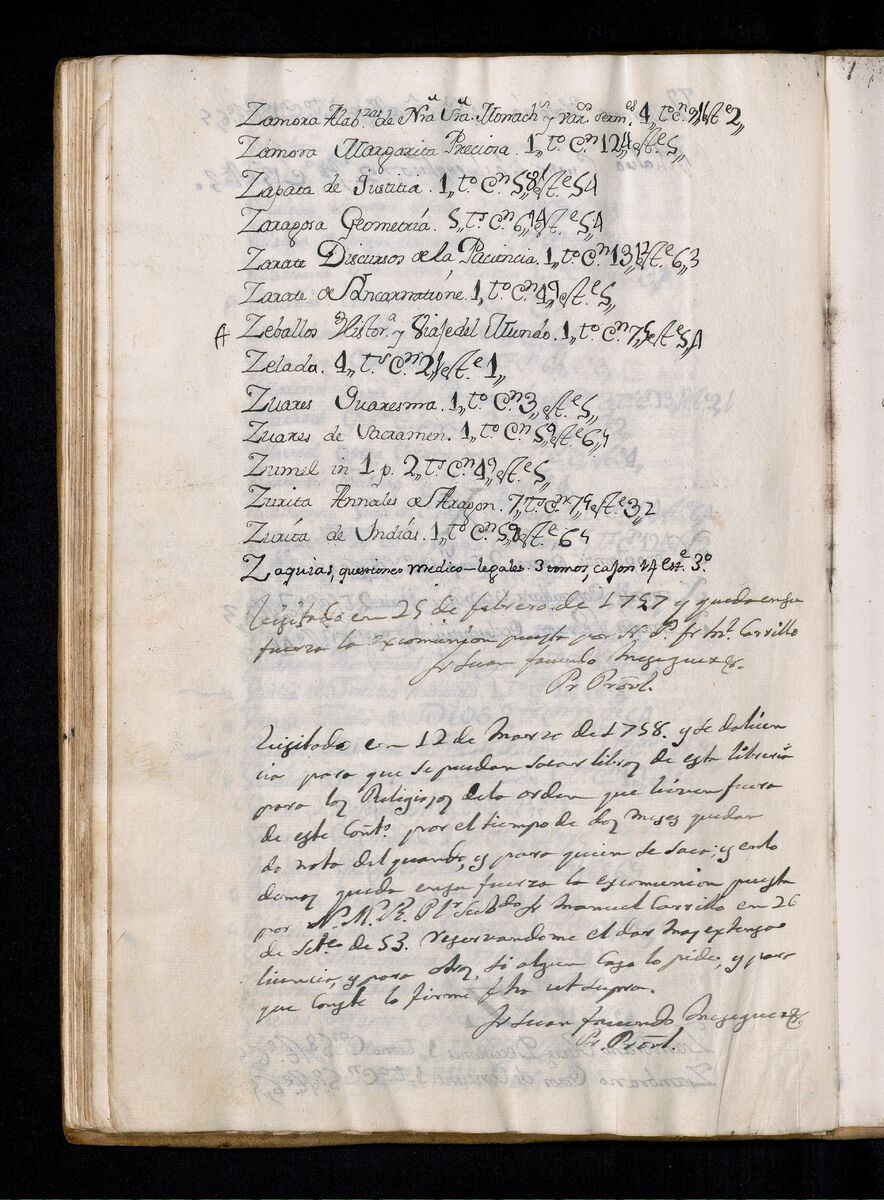 Zamora Alab.zas de Nra Sra. Monach.s y var.s serm.es 4,, t.s C.n 9,, est.e 2,,
Zamora Margarita Preciosa. 1,, t.o C.n 12,, est.e 5,,
Zapata de Justitia. 1,, t.o C.n 5,, est.e 54
Zaragosa Geometría. 5,, t.s C.n 6,, est.e 5,,4
Zarate Discursos de la Paciencia. 1,, t.o C.n 13,, est.e 6,,3
Zarate de Incarnatione. 1,, t.o C.n 4,, est.e 5,,
A Zeballos Histor.a y Viaje del Mundo. 1,, t.o C.n 7,, est.e 5,,4
Zelada. 4,, t.s C.n 2,, est.e 1,,
Zuares Quaresma. 1,, t.o C.n 3,, est.e 5,,
Zuares de Sacramen. 1,, t.o C.n 5,, est.e 6,,
Zumel in 1 p. 2,, t.s C.n 4,, est.e 5,,
Zurita Annales de Aragon. 7,, t.s C.n 7,, est.e 3,,2
Zurita de Indias. 1,, t.o C.n 5,, est.e 6
Zaquias, questiones medico-legales. 3 tomos, cajon 14 est.e 3.o
Visitado en 25 de febrero de 1757 y queda en su
fuerza la excomunion puesta por N. P. fr. M.l Carrillo
Fr Juan facundo Meseguer
Pr. Prōvl.
Visitado en 12 de Marzo de 1758. y se da licen
cia para que se puedan sacar libros de esta libreria
para los Religiosos de la orden que viven fuera
de este Conv.to por el tiempo de dos meses quedan
do nota del quando, y para quien se saca; y en lo
demas queda en su fuerza la excomunion puesta
por N. M. R. P. Mr. Fr Manuel Carrillo en 26
de Set.e de 53. reservandome el dar mas extensa
licencia, y para otros, si algun caso lo pide, y para
que conste lo firme fha ut supra.
Fr Juan facundo Meseguer
Pr. Prōvl.